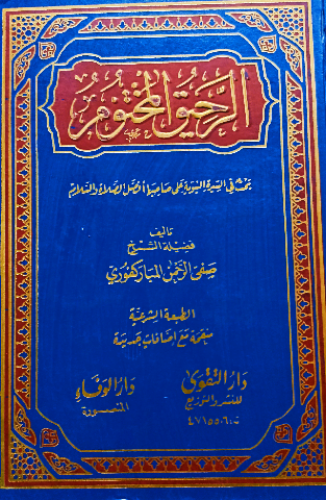 الرحيق المختوم
بحث في السيرة النبوية على صاحبها أفضل الصلاة والسلام
تأليف
فضيلة الشيخ
صفي الرحمن المباركفوري
الطبعة الشرعية
منقحة مع إضافات جديدة
دار التقوى
للنشر والتوزيع
ت: ٤٧١٥٥٠٦
دار الوفاء
المنصورة